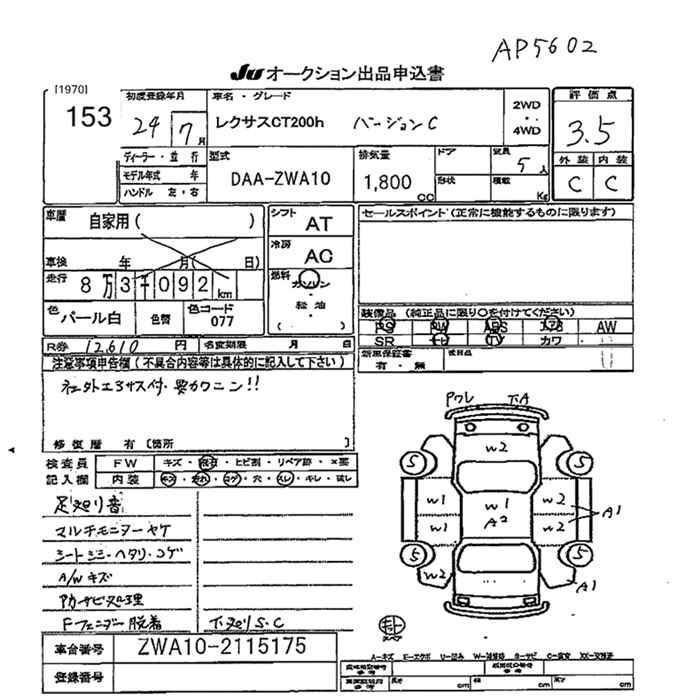 AP5602
JU オークション出品申込書
[1970]
153
初度登録年月
24 7月
車名・グレード
レクサスCT200h バージョンC
2WD
・
4WD
評価点
3.5
外装 内装
C C
ディーラー・並行
モデル年式 年
ハンドル 左・右
型式
DAA-ZWA10
排気量
1,800 cc
ドア
形状
定員 5人
積載 Kg
車歴 自家用( )
車検 年 月( 日)
走行 8万3千092km
色 パール白 色替 色コード 077
シフト AT
冷房 AC
燃料 ガソリン・軽油・( )
セールスポイント(正常に機能するものに限ります)
装備品(純正品に限り〇を付けてください)
PS PW ABS エアB AW
SR ナビ TV カワ
新車保証書 有・無
後日品
R券 12,610円 名変期限 月 日
注意事項申告欄(不具合内容等は具体的に記入して下さい)
社外エアサス付・要カクニン!!
修復歴 有[箇所
検査員 FW キズ・飛石・ヒビ割・リペア跡・×要
記入欄 内装 キズ・汚れ・コゲ・穴・スレ・キレ・試し
足廻り音
マルチモニターヤケ
シートシミ・ヘタリ・コゲ
A/Wキズ
防サビ処理
Fフェンダー脱着
下廻りS.C
Pワレ 下A
W2
5 5
W1 W1 W2
A2 A1
W1 W2
5 5
W2 A1
車台番号 ZWA10-2115175
登録番号
A-キズ E-エクボ U-凹み W-補修跡 S-サビ C-腐食 XX-交換済